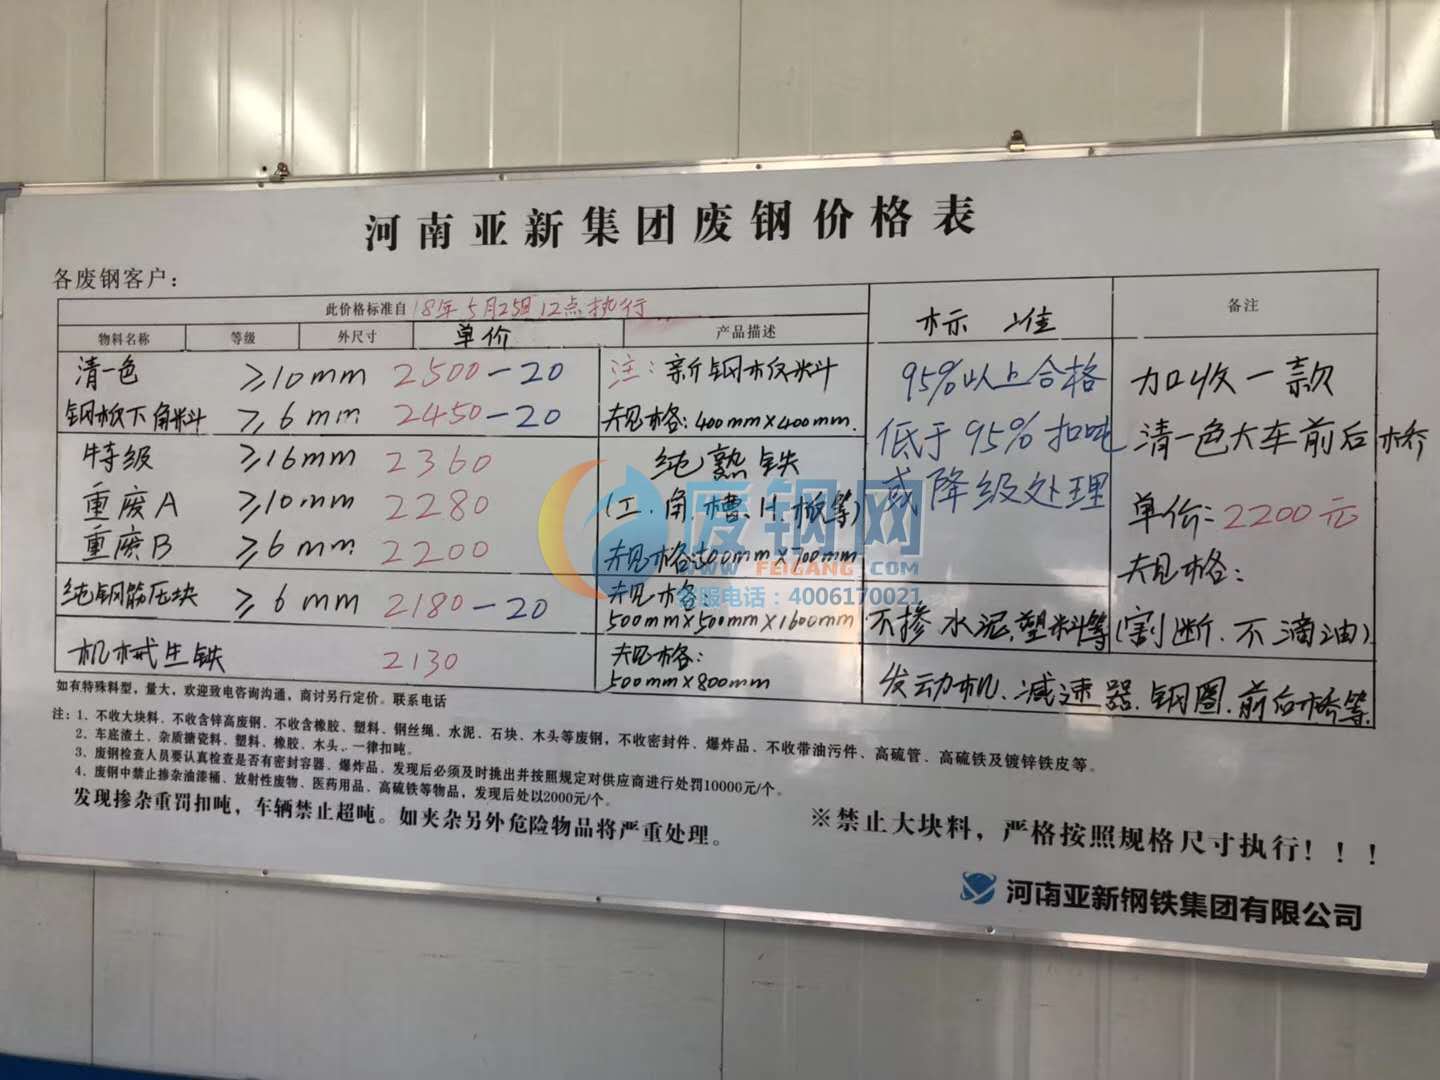 河南亚新集团废钢价格表
各废钢客户：
此价格标准自 18年5月25日12点执行
标准
备注
物料名称 等级 外尺寸 单价 产品描述
清一色 ≥10mm 2500-20 注：新钢板料
钢板下角料 ≥6mm 2450-20 规格：400mm×400mm.
95%以上合格
低于95%扣吨
或降级处理
加收一款
清一色大车前后桥
单价：2200元
规格：
(割断.不滴油)
特级 ≥16mm 2360 纯熟铁
重废A ≥10mm 2280 (工.角.槽.H.板等)
重废B ≥6mm 2200 规格:500mm×700mm
纯钢筋压块 ≥6mm 2180-20 规格：
500mm×500mm×1600mm 不掺水泥.塑料等
机械生铁 2130 规格：
500mm×800mm 发动机.减速器.钢圈.前后桥等.
如有特殊料型，量大，欢迎致电咨询沟通，商讨另行定价。联系电话
注：1、不收大块料、不收含锌高废钢、不收含橡胶、塑料、钢丝绳、水泥、石块、木头等废钢，不收密封件、爆炸品、不收带油污件、高硫管、高硫铁及镀锌铁皮等。
2、车底渣土、杂质搪瓷料、塑料、橡胶、木头、一律扣吨。
3、废钢检查人员要认真检查是否有密封容器、爆炸品、发现后必须及时挑出并按照规定对供应商进行处罚10000元/个。
4、废钢中禁止掺杂油漆桶、放射性废物、医药用品、高硫铁等物品，发现后处以2000元/个。
发现掺杂重罚扣吨，车辆禁止超吨。如夹杂另外危险物品将严重处理。
※禁止大块料，严格按照规格尺寸执行！！！
河南亚新钢铁集团有限公司
废钢网
WWW.FEIGANG.NET
客服电话：4006170021